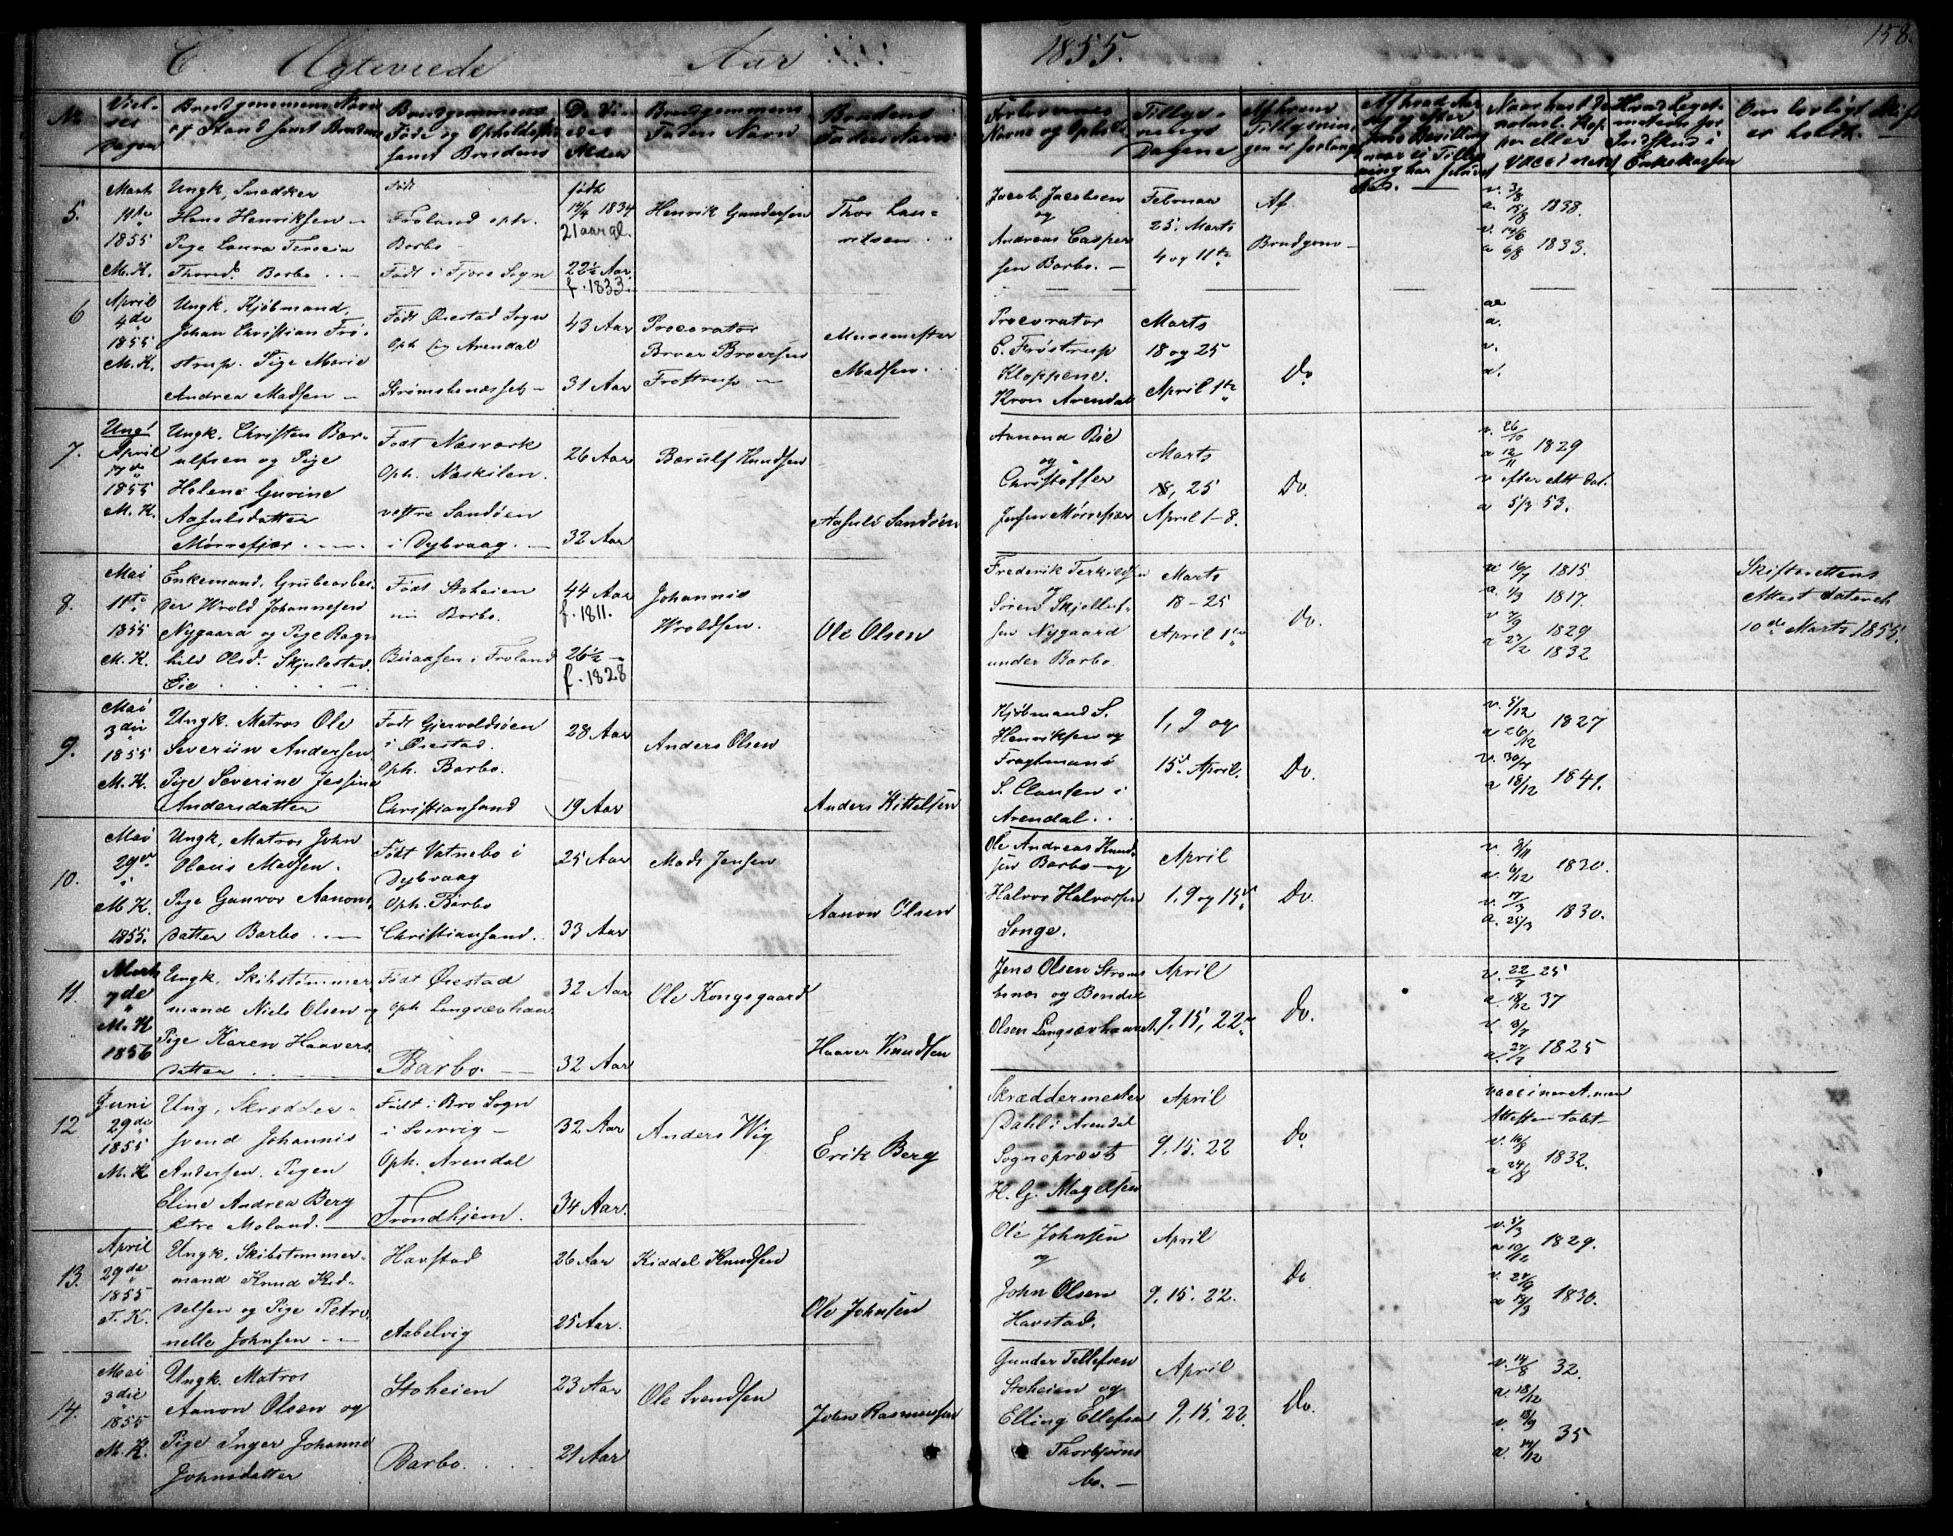 C. Ægteviede Aar 1855. 158.
No
Viel-
ses
Dagen
Brudgommens Navn
og Stand samt Brudens
Brudgommens
Føde og Opholdst
samt Brudens
De Vi-
edes
Alder
Brudgommens
Faders Navn
Brudens
Faders Navn
Forlovernes
Navne og Opholds
Tillys-
nings
Dagene
Af hvem
Tillysnin-
gen er forlangt
Naar havt de
naturl. Kop-
per eller
Vaccineret
Om lovligt Skifte
er holdt.
5.
Marts
11te
1855
M. K.
Ungk, Snedker
Hans Henriksen —
Pige Laura Tensein
Thorsd. Barbo
Født
Froland oph.
Barbo
Født i Fjære Sogn
født
14/4 1834
21 aar gl.
22½ Aar
f. 1833.
Henrik Gundersen
Thos Lau-
ritsen
Jacob Jacobsen
og
Andreas Casper
sen Barbo. —
Februar
25. Marts
4 og 11te
Af
Brudgom —
v. 3/8
a. 15/8 1838.
v. 14/6
a 6/8 1833.
6
April
4de
1855
M. K.
Ungk, Kjøbmand,
Johan Christian Frø-
strup. Pige Marie
Andrea Madsen —
Født Øiestad Sogn
Oph. Arendal
Strømsbundsset —
43 Aar
31 Aar
Procorator
Broer Broersen
Frøstrup —
Muurmester
Madsen
Procorator
C. Frøstrup
Kloppene.
Kron Arendal
Marts
18 og 25
April 1te
Do
a.
v.
a.
7.
Ung!
April
17de
1855
M. K.
Ungk, Christen Bør-
ulfsen og Pige
Helene Gurine
Aasulsdatter
Mørrefjær
Født Næsværk
Oph. Næskilen.
vestre Sandøen
i Dybvaag. —
26 Aar
32 Aar
Børulf Knudsen
Aasuld Sandøen
Aanond Bie
og
Christoffer
Jensen Mørrefjær
Marts
18, 25
April 1-8.
Do.
v. 26/10
a 12/11 1829
v efter Att dat.
a 5/3 53.
8.
Mai
11te
1855
M. K.
Enkemand, Grubearbei-
der Wrold Johannesen
Nygaard og Pige Ragn
hild Olsd. Skjulestad
Eie
Født Stoheien
Barbo.
Buaasen i Froland
44 Aar
f. 1811.
26½
f. 1828
Johannis
Wroldsen.
Ole Olsen
Frederik Terkildsen
og
Søren Skjellef-
sen Nygaard
under Barbo.
Marts
18-25
April 1te
Do.
16/7 1815
a. 1/3 1817.
v 7/9 1829
a 23/2 1832
Skifterettens
Attest dateret
10de Marts 1855.
9.
Mai
3die
1855
M. K.
Ungk. Matros Ole
Severiin Andersen
Pige Severine Jessine
Andersdatter
Født Gjervoldsøen
i Øiestad.
Oph. Barbo.
Christiansand
28 Aar
19 Aar
Anders Olsen
Anders Kittelsen
Kjøbmand S.
Henriksen og
Fragtmand
S. Clausen i
Arendal
1, 9 og
15de April.
Do.
v. 5/12
a 26/12 1827
v. 30/7
a 18/12 1841.
10.
Mai
29de
M. K.
1855.
Ungk, Matros John
Olaus Madsen.
Pige Gunvor Aanons-
datter Barbo
Født Vatnebo i
Dybvaag
Oph. Barbo
Christiansand.
25 Aar
33 Aar
Mads Jensen
Aanon Olsen
Ole Andreas Knud-
sen Barbo og
Halvor Halvorsen
Songe.
April
1, 9 og 15de
Do.
v. 3/11
a. 6/12 1830.
v. 17/3
a. 25/3 1830.
11.
Marts
7de
M. K
1856
Ungk, Skibstømmer
mand Niels Olsen og
Pige Karen Haavers-
datter
Født Øiestad
oph Langsævhavn
Barbo.
32 Aar
32 Aar
Ole Kongsgaard
Haaver Knudsen
Jens Olsen Strøms
bunes og Bendik
Olsen Langsævhavn
April
9, 15, 22de
Do.
v. 22/7 25
a 18/12 37
v. 3/7
a. 27/7 1825
12
Juni
29de
1855
M. K
Ung, Skrædder-
svend Johannis
Andersen. Pigen
Eline Andrea Berg
Østre Moland.
Født i Bro Sogn
i Sverrig —
Oph. Arendal
Trondhjem.
32 Aar
34 Aar.
Anders Wig
Erik Berg
Skræddermester
Dahl i Arendal
Sogneprest
H. G. Magelsen
April
9, 15. 22
Do
vaccineret, men
Attesten tabt
v. 16/8
a 24/8 1832.
13.
April
29de
1855
T. K.
Ungk, Skibstømmer-
mand Knud Kid-
delsen og Pige Petro-
nelle Johnsen —
Havstad
Aabelvig
26 Aar
25 Aar.
Kiddel Knudsen
Ole Johnsen
Ole Johnsen
og
John Olsen
Havstad.
April
9, 15. 22.
Do
v. 5/3
a 10/12 1829.
v. 27/9
a 17/3 1830.
14.
Mai
3die
1855
M. K.
Ungk. Matros
Aanon Olsen og
Pige Inger Johanne
Johnsdatter
Stoheien
Barbo.
23 Aar
21 Aar
Ole Svendsen
John Rasmussen
Gunder Tellefsen
Stoheien og
Elling Ellefsen
Thorbjørns
bo. —
April
9, 15, 22.
Do.
v. 14/8 32.
a. 18/12
v. 13/9 35
a. 14/12